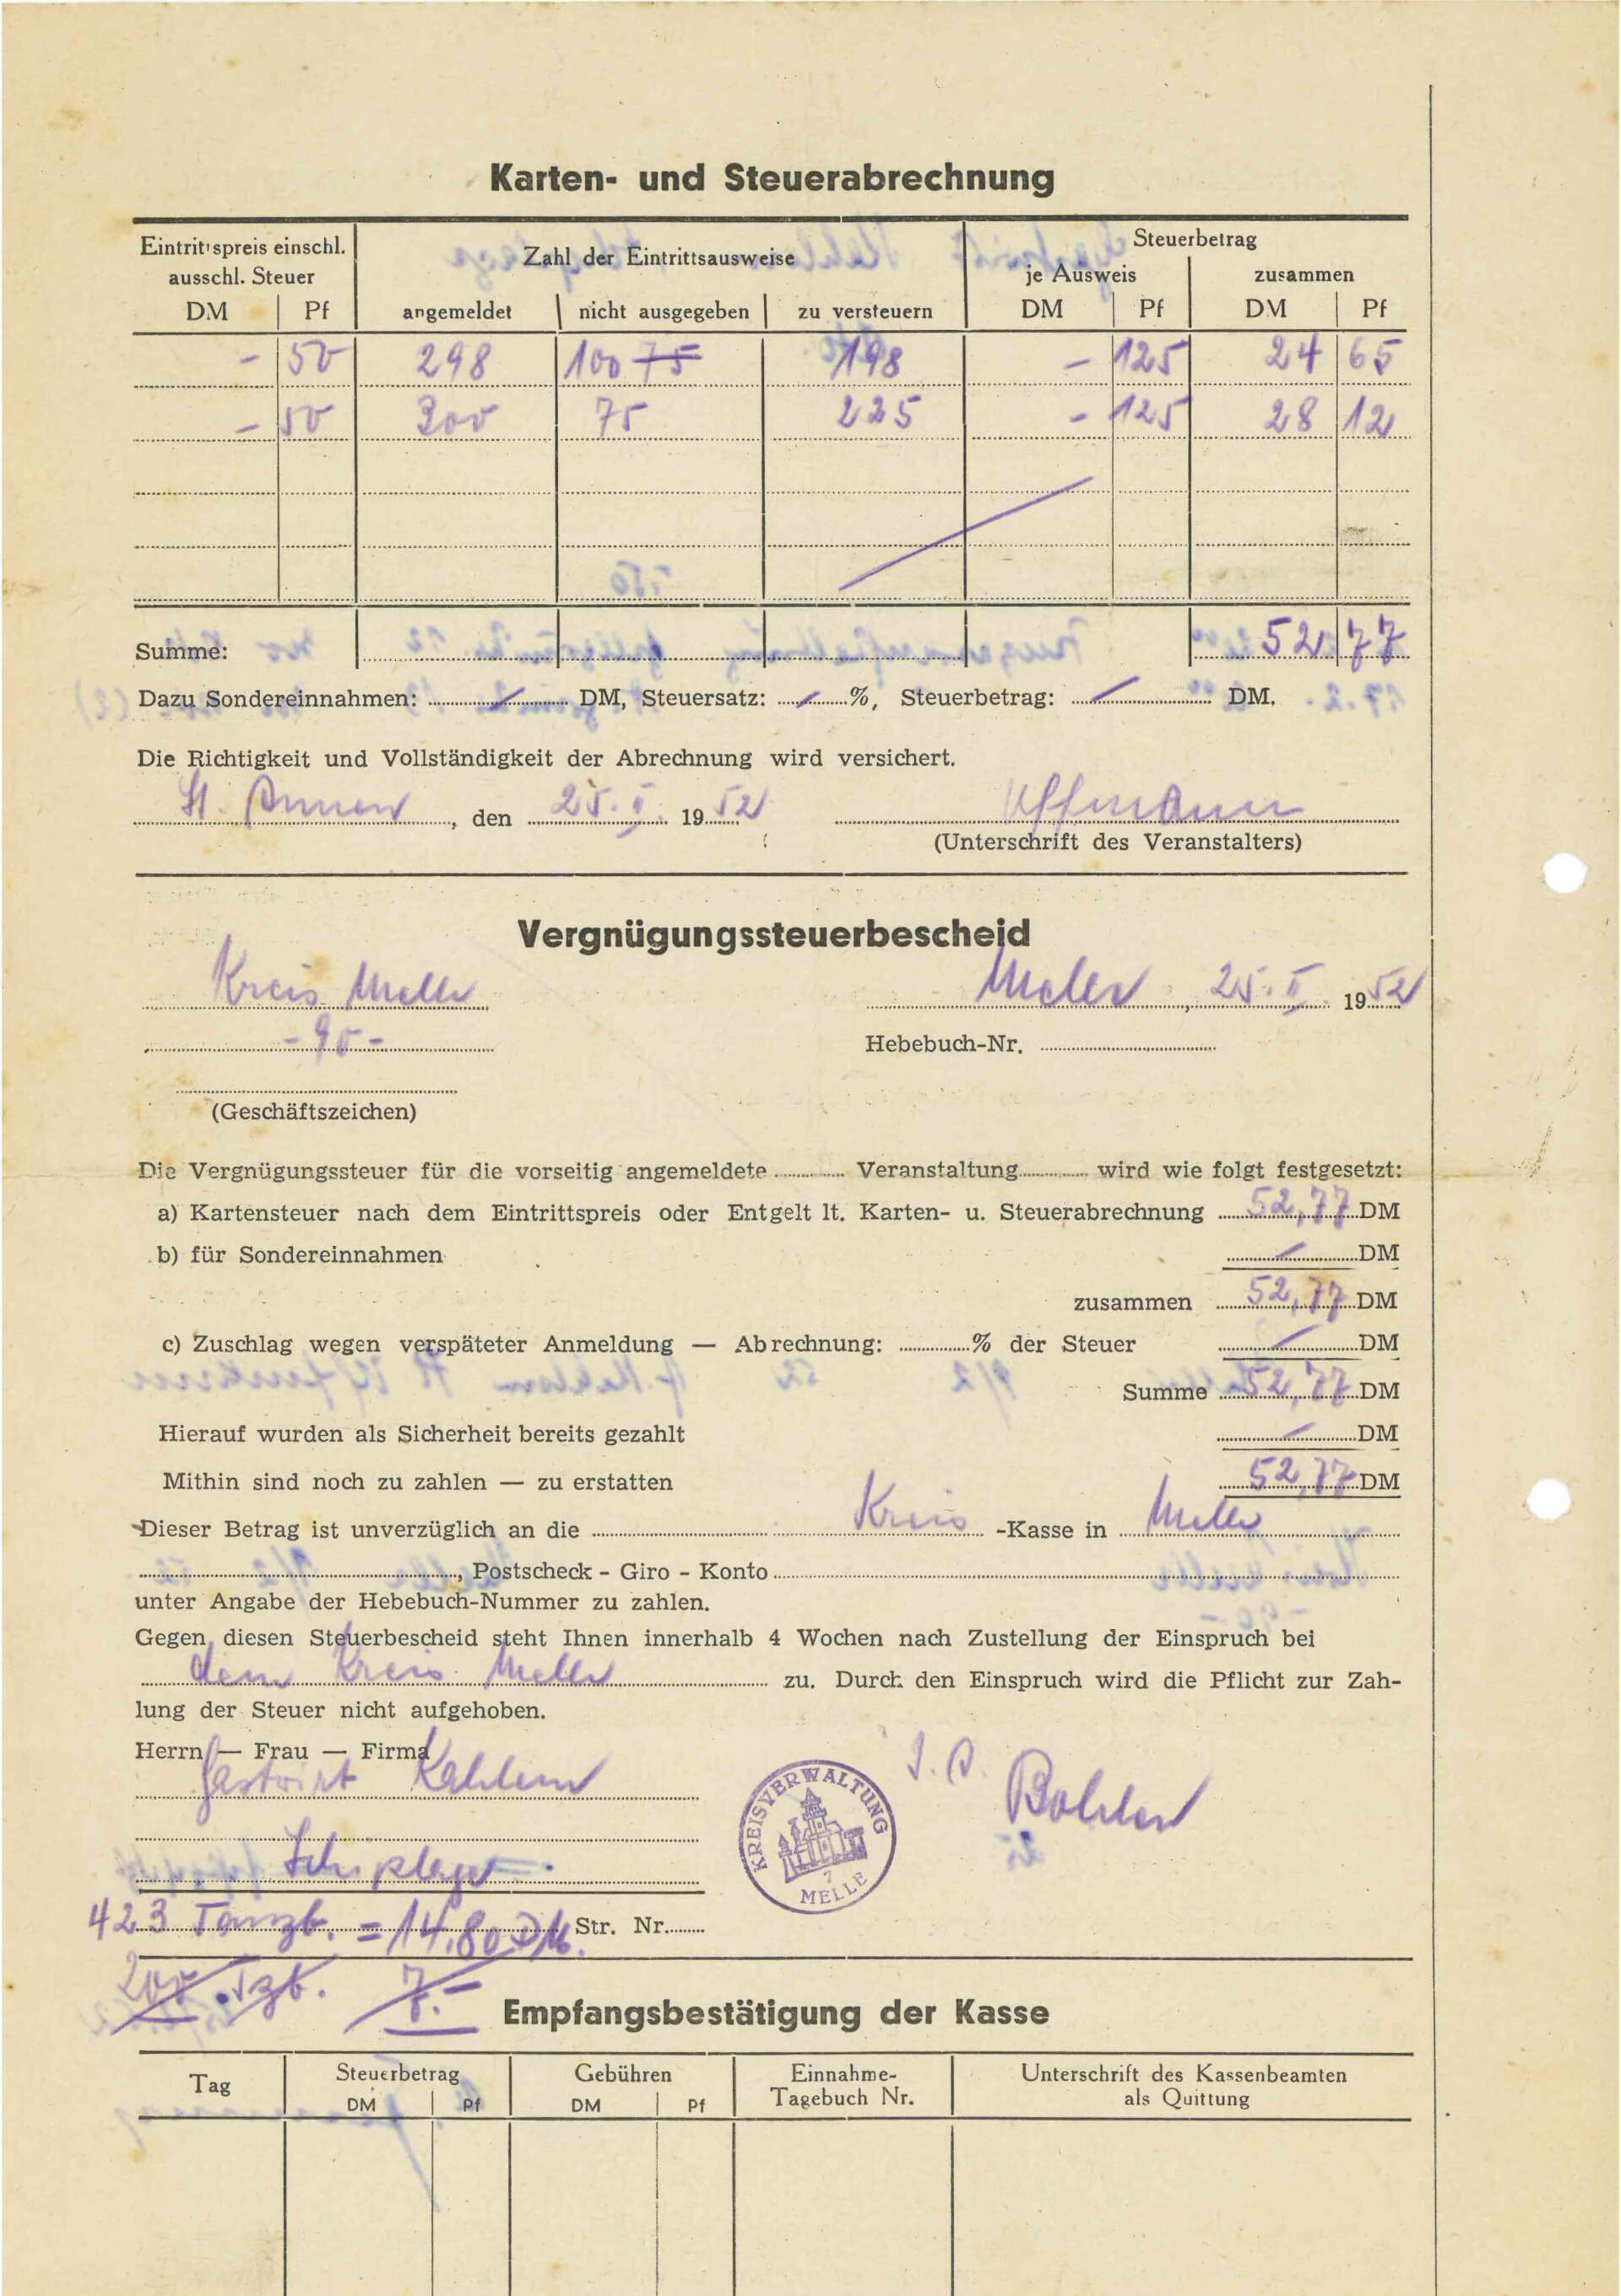 Karten- und Steuerabrechnung
Eintrittspreis einschl. ausschl. Steuer
Zahl der Eintrittsausweise
Steuerbetrag
je Ausweis zusammen
DM Pf angemeldet nicht ausgegeben zu versteuern DM Pf DM Pf
- 50 298 100 75 198 - 125 24 65
- 50 300 75 225 - 125 28 12
Summe: 52 77
Dazu Sondereinnahmen: DM, Steuersatz: %, Steuerbetrag: DM.
Die Richtigkeit und Vollständigkeit der Abrechnung wird versichert.
St. Annen, den 25. II. 1952
(Unterschrift des Veranstalters)
Vergnügungssteuerbescheid
Kreis Melle
Melle, 25. II. 1952
- 90 -
Hebebuch-Nr.
(Geschäftszeichen)
Die Vergnügungssteuer für die vorseitig angemeldete Veranstaltung wird wie folgt festgesetzt:
a) Kartensteuer nach dem Eintrittspreis oder Entgelt lt. Karten- u. Steuerabrechnung 52,77 DM
b) für Sondereinnahmen DM
zusammen 52,77 DM
c) Zuschlag wegen verspäteter Anmeldung — Abrechnung: % der Steuer DM
Summe 52,77 DM
Hierauf wurden als Sicherheit bereits gezahlt DM
Mithin sind noch zu zahlen — zu erstatten 52,77 DM
Dieser Betrag ist unverzüglich an die Kreis -Kasse in Melle
, Postscheck - Giro - Konto
unter Angabe der Hebebuch-Nummer zu zahlen.
Gegen diesen Steuerbescheid steht Ihnen innerhalb 4 Wochen nach Zustellung der Einspruch bei
dem Kreis Melle zu. Durch den Einspruch wird die Pflicht zur Zah-
lung der Steuer nicht aufgehoben.
Herrn — Frau — Firma
Gastwirt
KREISVERWALTUNG
7
MELLE
Schiplage
423 Tanzb. = 14,80 DM. Str. Nr.
200 Tzb. 7.-
Empfangsbestätigung der Kasse
Tag Steuerbetrag Gebühren Einnahme- Unterschrift des Kassenbeamten
DM Pf DM Pf Tagebuch Nr. als Quittung